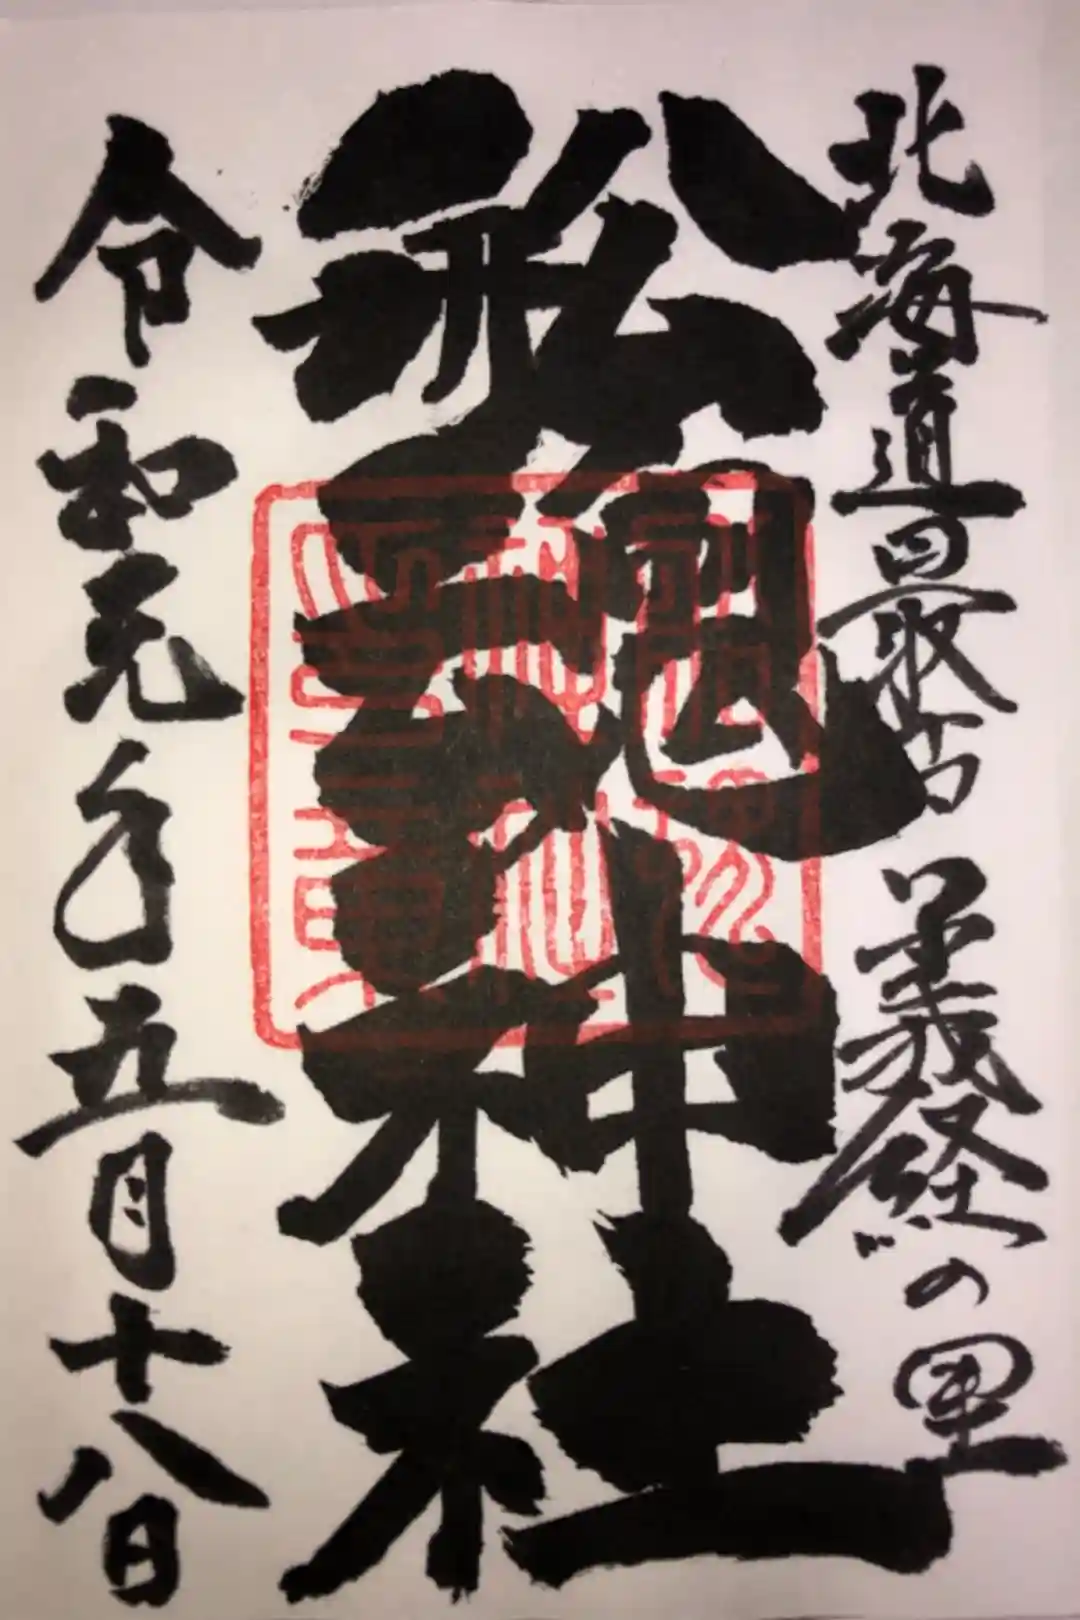 北海道最古 義経の里
舩魂神社
令和元年五月十八日